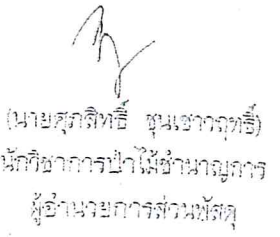 (นายศุภสิทธิ์ ชุนเชาวฤทธิ์)
นักวิชาการป่าไม้ชำนาญการ
ผู้อำนวยการส่วนพัสดุ